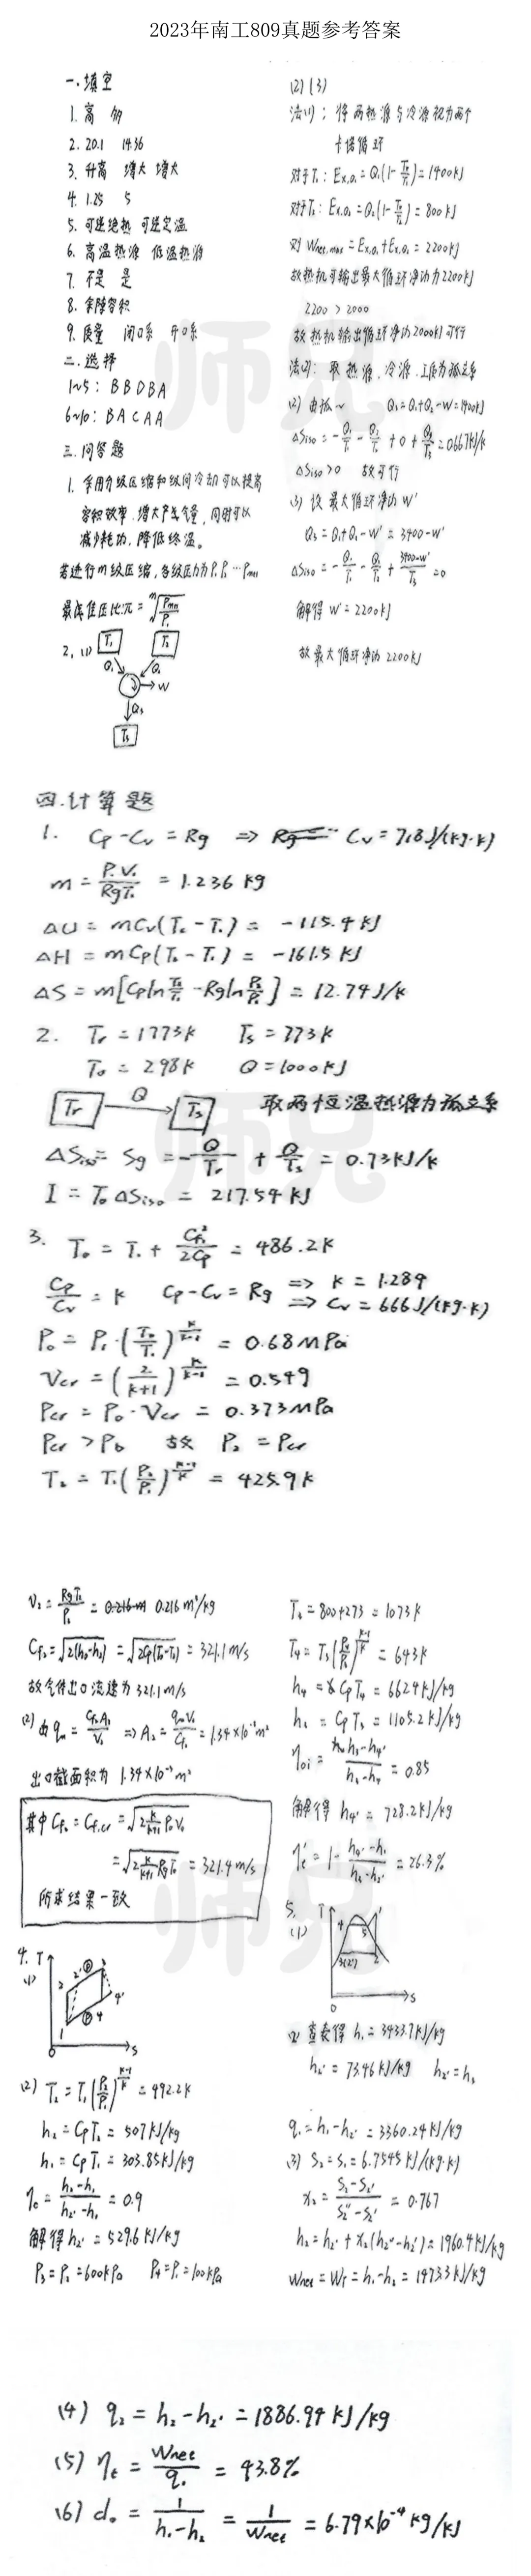 2023年南工809真题参考答案
一.填空
1. 高 多
2. 20.1 14.36
3. 升高 增大 增大
4. 1.25 5
5. 可逆绝热 可逆定温
6. 高温热源 低温热源
7. 不是 是
8. 余隙容积
9. 质量 闭口系 开口系
二.选择
1~5: BBDBA
6~10: BACAA
三.问答题
1. 采用分级压缩和级间冷却可以提高
容积效率,增大产气量,同时可以
减少耗功,降低终温。
若进行m级压缩,各级压力为P₁P₂…Pm+1
最佳增压比π = ᵐ√(Pm+1/P₁)
2. (1) T₁ T₂
Q₁ Q₂
W
Q₃
T₃
(2)(3)
法(1): 将两热源与冷源视为两个
卡诺循环
对于T₁: Ex,Q₁ = Q₁(1-T₃/T₁) = 1400kJ
对于T₂: Ex,Q₂ = Q₂(1-T₃/T₂) = 800kJ
则 Wnet,max = Ex,Q₁+Ex,Q₂ = 2200kJ
故热机可输出最大循环净功为2200kJ
2200 > 2000
故热机输出循环净功2000kJ可行
法(2): 取热源,冷源,工质为孤立系
(2) 由孤~ Q₃=Q₁+Q₂-W=1400kJ
ΔSiso = -Q₁/T₁ - Q₂/T₂ + 0 + Q₃/T₃ = 0.667kJ/K
ΔSiso>0 故可行
(3) 设最大循环净功W'
Q₃ = Q₁+Q₂-W' = 3400-W'
ΔSiso = -Q₁/T₁ - Q₂/T₂ + (3400-W')/T₃ = 0
解得 W' = 2200kJ
故最大循环净功2200kJ
四.计算题
1. Cp-Cv = Rg ⇒ Cv = 718J/(kg·K)
m = P₁V₁/RgT₁ = 1.236 kg
ΔU = mCv(T₂-T₁) = -115.4kJ
ΔH = mCp(T₂-T₁) = -161.5 kJ
ΔS = m[Cpln T₂/T₁ - Rgln P₂/P₁] = 12.74J/K
2. Tr = 1773K Ts = 773K
T₀ = 298K Q = 1000kJ
Tr Q Ts 取两恒温热源为孤立系
ΔSiso = Sg = -Q/Tr + Q/Ts = 0.73kJ/K
I = T₀ΔSiso = 217.54 kJ
3. T₀ = T₁ + Cf₁²/2Cp = 486.2K
Cp/Cv = k Cp-Cv = Rg ⇒ k = 1.289
⇒ Cv = 666J/(kg·K)
P₀ = P₁·(T₀/T₁)^(k/(k-1)) = 0.68MPa
Vcr = (2/(k+1))^(k/(k-1)) = 0.549
Pcr = P₀·Vcr = 0.373MPa
Pcr > Pb 故 P₂ = Pcr
T₂ = T₁(P₂/P₁)^((k-1)/k) = 425.9K
V₂ = RgT₂/P₂ = 0.216 m³/kg
Cf₂ = √2(h₀-h₂) = √2Cp(T₀-T₂) = 321.1m/s
故气体出口流速为321.1m/s
(2) 由qm = Cf₂A₂/V₂ ⇒ A₂ = qmV₂/Cf₂ = 1.34×10⁻³m²
出口截面积为 1.34×10⁻³m²
其中Cf₂ = Cf,cr = √(2 k/(k+1) P₀V₀)
= √(2 k/(k+1) RgT₀) = 321.4m/s
所求结果一致
4. T
(1) 2 2' 3 4' 4 1
0 s
(2) T₂ = T₁(P₂/P₁)^((k-1)/k) = 492.2K
h₂ = CpT₂ = 507kJ/kg
h₁ = CpT₁ = 303.85kJ/kg
ηc = (h₂-h₁)/(h₂'-h₁) = 0.9
解得h₂' = 529.6kJ/kg
P₃=P₂=600kPa P₄=P₁=100kPa
T₃ = 800+273 = 1073K
T₄ = T₃(P₄/P₃)^((k-1)/k) = 643K
h₄ = CpT₄ = 662.4kJ/kg
h₃ = CpT₃ = 1105.2kJ/kg
ηoi = (h₃-h₄')/(h₃-h₄) = 0.85
解得 h₄' = 728.2kJ/kg
ηt' = 1 - (h₄'-h₁)/(h₃-h₂') = 26.3%
5. T
(1) 4 5 1 3(2') 2
0 s
(2) 查表得 h₁ = 3433.7kJ/kg
h₂' = 73.46kJ/kg h₂'=h₃
q₁ = h₁-h₂' = 3360.24kJ/kg
(3) S₂=S₁=6.7545kJ/(kg·K)
x₂ = (S₂-S₂')/(S₂''-S₂') = 0.767
h₂ = h₂' + x₂(h₂''-h₂') = 1960.4kJ/kg
Wnet = WT = h₁-h₂ = 1473.3kJ/kg
(4) q₂ = h₂-h₂' = 1886.94 kJ/kg
(5) ηt = Wnet/q₁ = 43.8%
(6) d₀ = 1/(h₁-h₂) = 1/Wnet = 6.79×10⁻⁴kg/kJ
师兄
师兄
师兄